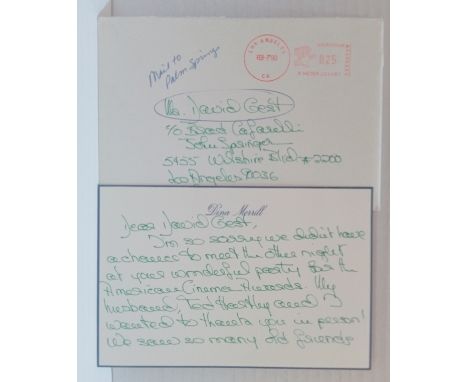 Mail to
Palm Springs
LOS ANGELES
CA
025
Mr. David Gest
c/o
John Springer
5455 Wilshire Blvd #2200
Los Angeles 90036
Dina Merrill
Dear David Gest,
I'm so sorry we didn't have
a chance to meet the other night
at your wonderful party for the
American Cinema Awards. My
husband, Ted Hartley and I
wanted to thank you in person!
We saw so many old friends